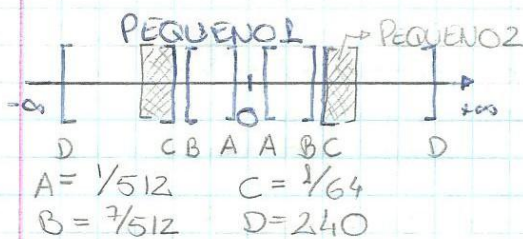 PEQUENO1
PEQUENO2
-∞ 0 +∞
D C B A A B C D
A = 1/512 C = 1/64
B = 7/512 D = 240